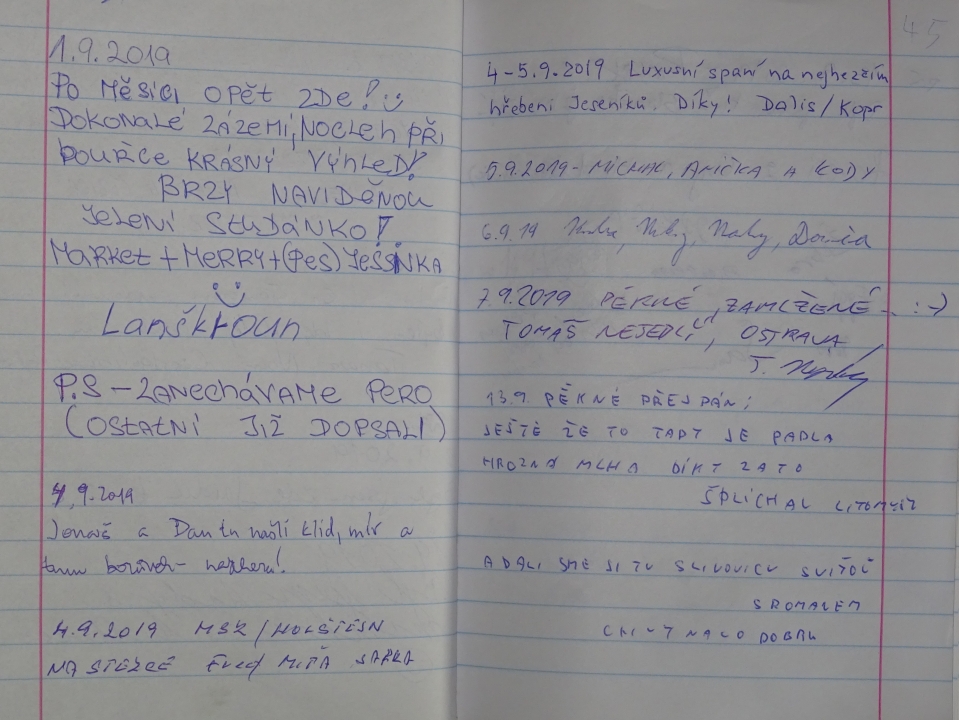 1.9.2019
PO MĚSÍCI OPĚT ZDE!
DOKONALÉ ZÁZEMÍ, NOCLEH PŘI
BOUŘCE KRÁSNÝ VÝHLED!
BRZY NAVIDĚNOU
JELENÍ STUDÁNKO!
MARKET + MERRY + (PES) JESSINKA
Lanškroun
P.S - ZANECHÁVAME PERO
(OSTATNÍ JIŽ DOPSALI)
4.9.2019
Jonáš a Dan tu našli klid, mír a
4.9.2019 MSK / HOLŠTEJN
NA STEZCE Fred MITĂ SARKA
45
4-5.9.2019 Luxusní spaní na nejhezčím
hřebeni Jeseníků. Díky! Dalis/Kopr
5.9.2019 - MICHAL, AMIČKA A KODY
6.9.19
7.9.2019 PĚKNÉ, ZAMLŽENÉ... :-)
TOMÁŠ NEJEDLÍ, OSTRAVA
13.9. PĚKNĚ PŘESPÁNI
JEŠTĚ ŽE TO TADY JE PADLA
HROZNÁ MLHA DÍKY ZATO
ŠPLÍCHAL LITOMYŠL
A DALI SME SI TU SLIVOVICU
S ROMANEM
DOBRU